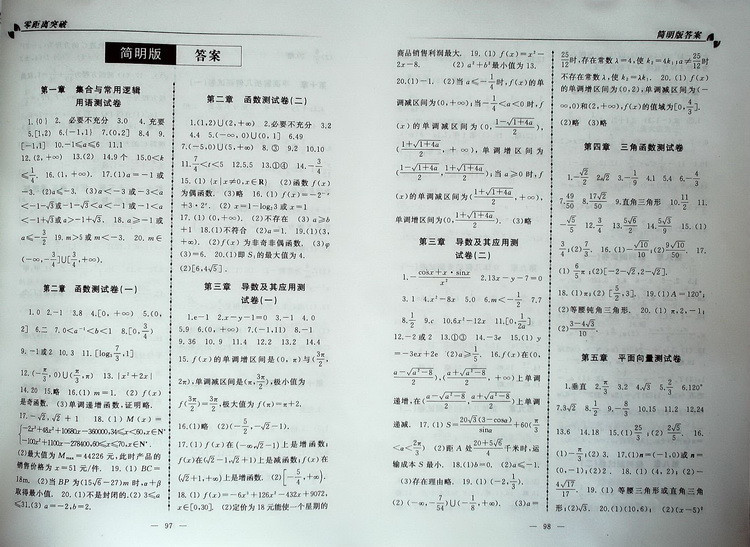 零距离突破
简明版 答案
第一章 集合与常用逻辑
用语测试卷
1.{0} 2. 必要不充分 3.0 4. 充要
5.[1,2) 6.(-1,1) 7.(0,2] 8.4 9.
[-1,1] 10.-1≤a≤6 11.1
12.(2,+∞) 13.(2) 14.9个 15.0<k
16.(1,+∞). 17.(1)a=-1或
-3. (2)a≤-3. (3)a<-3或-3<a
<-1-√3或-1-√3<a<-1或-1<a
<-1+√3或a>-1+√3. 18.a≥-1或
a≤-3/2 19.m>5或m<-3. 20.m∈
(-∞,-3/4]∪[3/4,+∞).
第二章 函数测试卷(一)
1.0 2.-1 3.8 4.[0,+∞) 5.(0,
2] 6.二 7.0<a⁻¹<b<1 8.[0,3/4)
9.-1或2 10.3 11.[log₂7/3,1]
13.{x|x²+2x}
14.20 15.略 16.(1)m=1. (2)f(x)
是奇函数. (3)单调递增函数,证明略.
17.-√2,√2+1 18.(1)M(x)=
(2)最大值为Mmax=44226元,此时产品的
销售价格为x=51元/件. 19.(1)BC=
18m. (2)当BP为(15√6-27)m时,α+β
取得最小值. 20.(1)不是封闭的.(2)3≤a
≤31.(3)a=-2,b=2.
第二章 函数测试卷(二)
1.(1,2)∪(2,+∞) 2.必要不充分 3.2
4.4 5.(-∞,0)∪(0,1] 6.49
7.(-5,0)∪(5,+∞) 8.③ 9.2 10.10
11.7/4<t<5 12.5.5 13.①④ 14.-3/4
15.(1){x|x≠0,x∈R} (2)函数f(x)
为偶函数. (3)略 16.(1)f(x)=-2⁻ˣ
+3·2ˣ. (2)x=1-log₂3或x=1
17.(1)(0,+∞). (2)不存在 (3)a≥b
+1 18.(1)不符合 (2)a=1. 19.(1)(3,
+∞). (2)f(x)为非奇非偶函数. (3)φ
(3)=6. 20.(1)即S₁的最大值为4.
(2)[6,4√5].
第三章 导数及其应用测
试卷(一)
1.e-1 2.x-y-1=0 3.-1 4.0
5.9 6.(0,+∞) 7.(-1,11) 8.-1
9.36 10.9 11.4 12.2 13.2 14.4
15.f(x)的单调增区间是(0,π)与(3π/2,
2π),单调减区间是(π,3π/2),极小值为
f(3π/2)=3π/2,极大值为f(π)=π+2.
16.(1)略 (2)(-5/2,-√2-1).
17.(1)f(x)在(-∞,√2-1)上是增函数;
f(x)在(√2-1,√2+1)上是减函数;f(x)在
(√2+1,+∞)上是增函数. (2)[-5/4,+∞).
18.(1)f(x)=-6x³+126x²-432x+9072,
x∈[0,30]. (2)定价为18元能使一个星期的
— 97 —
简明版答案
商品销售利润最大. 19.(1)f(x)=x³-
2x-8. (2)a³+b²最小值为13.
20.(1)-1. (2)当a≤-1/4时,f(x)的单
调减区间为(0,+∞);当-1/4<a<0时,f
(x)的单调减区间为(0,(1-√(1+4a))/2),
((1+√(1+4a))/2,+∞),单调增区间为
((1-√(1+4a))/2,(1+√(1+4a))/2);当a≥0时,f
(x)的单调减区间为((1+√(1+4a))/2,+∞),
单调增区间为(0,(1+√(1+4a))/2). (3)略
第三章 导数及其应用测
试卷(二)
1.-(cosx+x·sinx)/x² 2.13x-y-7=0
3.1 4.x²-8x 5.0 6.m<-1/2 7.7
8.1/2 9.c 10.6x²-12x 11.[0,1/2a]
12.-2或2 13.①③ 14.-3e 15.(1)y
=-3ex+2e (2)a≥1/5. 16.f(x)在(0,
(a-√(a²-8))/2),((a+√(a²-8))/2,+∞)上单调
递增,在((a-√(a²-8))/2,(a+√(a²-8))/2)上单调
<a<2π/3) (2)距A处(20+5√6)/4千米时,运
输成本S最小. 18.(1)b=0. (2)a≤-1.
(3)存在,理由略. 19.(1)(-2,1/3).
(2)(-∞,-7/54)∪(-1/8,+∞). (3)a=
25/12时,存在常数λ=4,使k₂=4k₁;a≠25/12时
不存在常数λ,使k₂=λk₁. 20.(1)f(x)
的单调增区间为(0,2);单调减区间为(-
∞,0)和(2,+∞),f(x)的值域为[0,4/3].
(2)略 (3)略
第四章 三角函数测试卷
1.-√2/2 2.√2/2 3.-1/9 4.1 5.4 6.-4/3
7.49/50 8.17√2/50 9.直角三角形 10.11/2 11.
-√5/5 12.3/4 13.5√6/2 14.5√3/9 15.(1)
3/4;(2)7/3. 16.(1)-√10/10;(2)9√10/50. 17.
(1)6/5π;(2)[-2-√2,2-√2].
18.(1)π;(2)[5/2,3]. 19.(1)A=120°;
(2)等腰钝角三角形. 20.(1)π,2,-1;
(2)(3-4√3)/10.
第五章 平面向量测试卷
1.垂直 2.π/3 3.2 4.√3 5.2/3 6.120°
7.3√2 8.1/2 9.-8/3 10.15 11.2 12.24
13.6 14.18 15.(1)25/3;(2)2√5/5 16.
(1)-π/3;(2)3. 17.(1)n=(-1,0)或n=
(0,-1);(2)2. 18.(1)(4,2);(2)-
4√17/17. 19.(1)等腰三角形或直角三角
形;(2)√3. 20.(1)(10,6); (2)(x-5)²
— 98 —